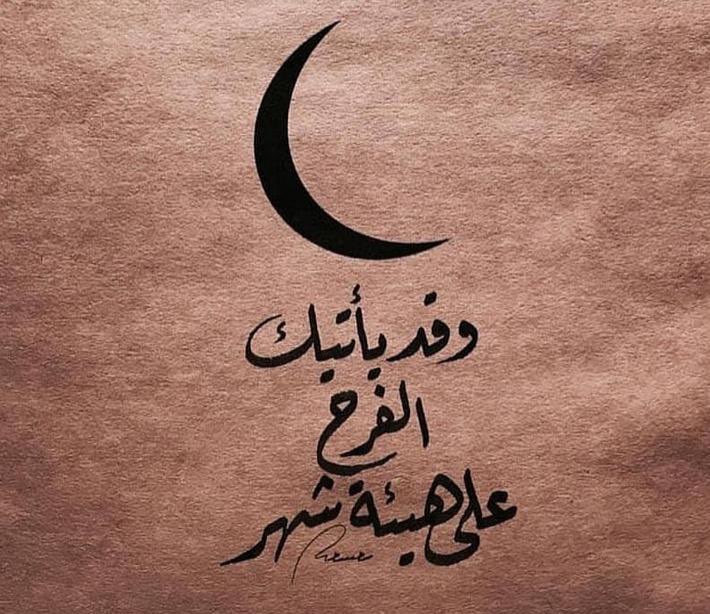 وقد يأتيك
الفرج
على هيئة شهر